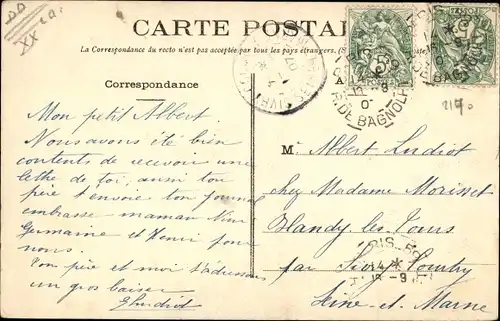 CARTE POSTALE
La Correspondance du recto n'est pas acceptée par tous les pays étrangers.
Correspondance
Mon petit Albert.
Nous avons été bien
contents de recevoir une
lettre de toi, aussi ton
père t'envoie ton journal
embrasse maman Nini
Germaine et Henri pour
nous.
Ton père et moi t'adressons
un gros baiser
Gludiot
M. Albert Ludiot
chez Madame Morisset
Blandy les Tours
par Sivry Courtry
Seine et Marne
R. DE BAGNOLET
2170